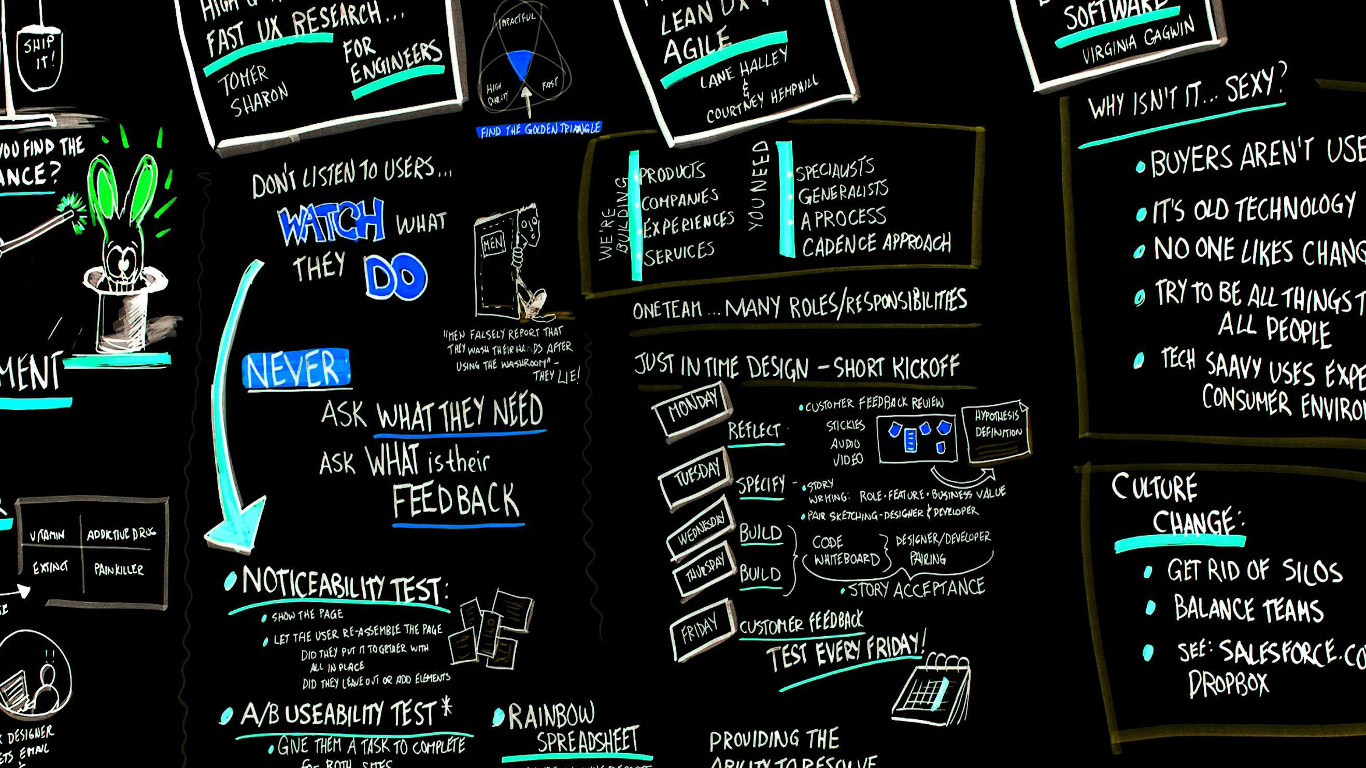 SHIP
IT!
YOU FIND THE
?
VITAMIN
ADDICTIVE DRUG
EXTINCT
PAINKILLER
DESIGNER
EMAIL
FAST UX RESEARCH...
FOR
ENGINEERS
TOMER
SHARON
IMPACTFUL
HIGH
QUALITY
FAST
FIND THE GOLDEN TRIANGLE
DON'T LISTEN TO USERS...
WATCH WHAT
THEY DO
MEN
"MEN FALSELY REPORT THAT
THEY WASH THEIR HANDS AFTER
USING THE WASHROOM" -
THEY LIE!
NEVER
ASK WHAT THEY NEED
ASK WHAT is their
FEEDBACK
NOTICEABILITY TEST:
SHOW THE PAGE
LET THE USER RE-ASSEMBLE THE PAGE
DID THEY PUT IT TOGETHER WITH
ALL IN PLACE
DID THEY LEAVE OUT OR ADD ELEMENTS
A/B USEABILITY TEST*
GIVE THEM A TASK TO COMPLETE
FOR BOTH SITES
RAINBOW
SPREADSHEET
LEAN UX &
AGILE
LANE HALLEY
&
COURTNEY HEMPHILL
WE'RE
BUILDING
PRODUCTS
COMPANIES
EXPERIENCES
SERVICES
YOU NEED
SPECIALISTS
GENERALISTS
A PROCESS
CADENCE APPROACH
ONE TEAM ... MANY ROLES/RESPONSIBILITIES
JUST IN TIME DESIGN - SHORT KICKOFF
MONDAY
REFLECT -
CUSTOMER FEEDBACK REVIEW
STICKIES
AUDIO
VIDEO
HYPOTHESIS
DEFINITION
TUESDAY
SPECIFY -
STORY
WRITING: ROLE · FEATURE · BUSINESS VALUE
PAIR SKETCHING - DESIGNER & DEVELOPER
WEDNESDAY
BUILD
THURSDAY
BUILD
CODE
WHITEBOARD
DESIGNER/DEVELOPER
PAIRING
STORY ACCEPTANCE
FRIDAY
CUSTOMER FEEDBACK
TEST EVERY FRIDAY!
PROVIDING THE
ABILITY TO RESOLVE
SOFTWARE
VIRGINIA GAGWIN
WHY ISN'T IT... SEXY?
BUYERS AREN'T USE
IT'S OLD TECHNOLOGY
NO ONE LIKES CHANG
TRY TO BE ALL THINGS T
ALL PEOPLE
TECH SAAVY USES EXPE
CONSUMER ENVIRON
CULTURE
CHANGE:
GET RID OF SILOS
BALANCE TEAMS
SEE: SALESFORCE.CO
DROPBOX